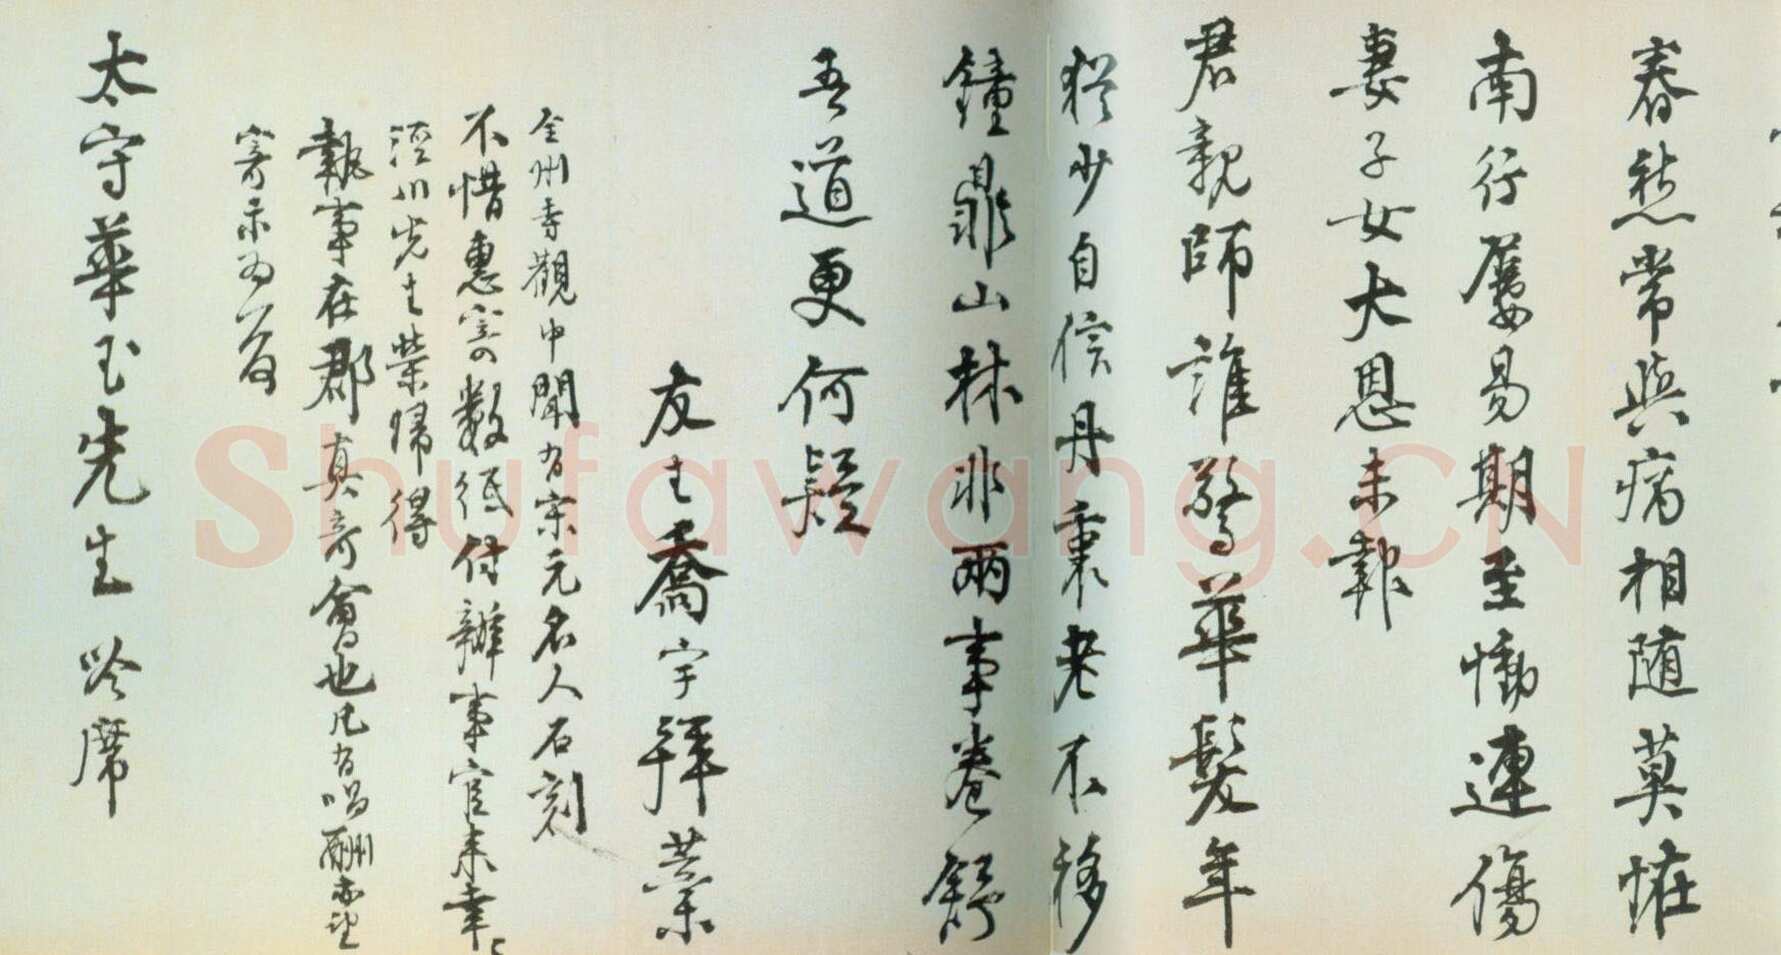 春愁常與病相随莫怪
南行屢易期至慟連傷
妻子女大恩未報
君親師誰驚華髮年
猶少自信丹衷老不移
鐘鼎山林非兩事卷舒
吾道更何疑
友生喬宇拜藁
全州寺觀中聞有宋元名人石刻
不惜惠寄數紙付辦事官来幸
涇川先生榮歸得
執事在郡真奇會也凡有唱酬亦望
寄示為荷
太守華玉先生吟席
Shufawang.CN